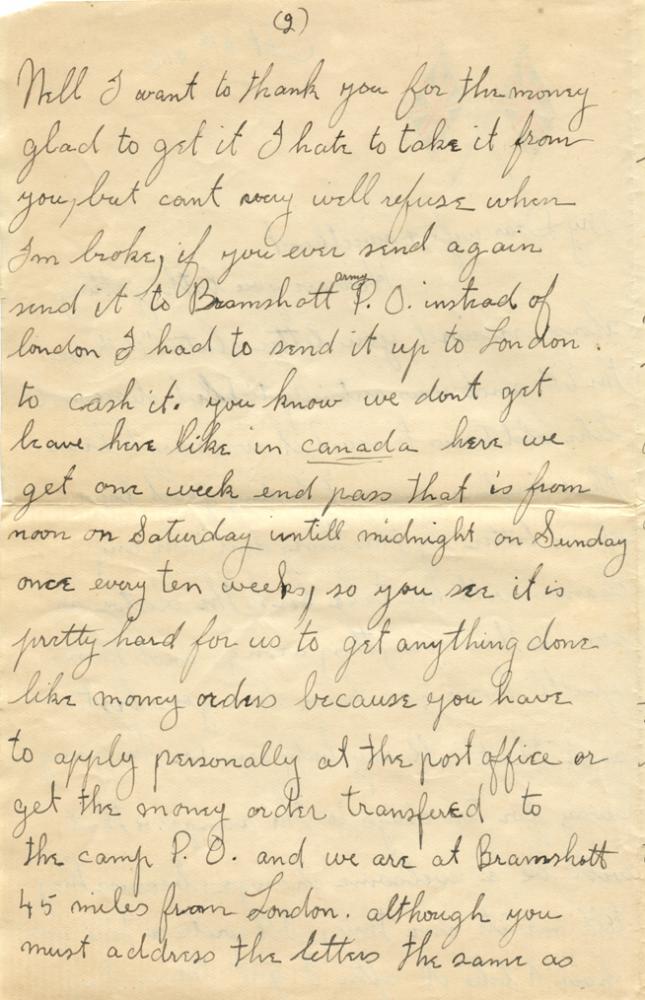 (2)
Well I want to thank you for the money
glad to get it I hate to take it from
you, but cant very well refuse when
I'm broke, if you ever send again
army
send it to Bramshott P. O. instead of
london I had to send it up to London.
to cash it. you know we dont get
leave here like in canada here we
get one week end pass that is from
noon on Saturday untill midnight on Sunday
once every ten weeks, so you see it is
pretty hard for us to get anything done
like money orders because you have
to apply personally at the post office or
get the money order transfered to
the camp P. O. and we are at Bramshott
45 miles from London. although you
must address the letters the same as